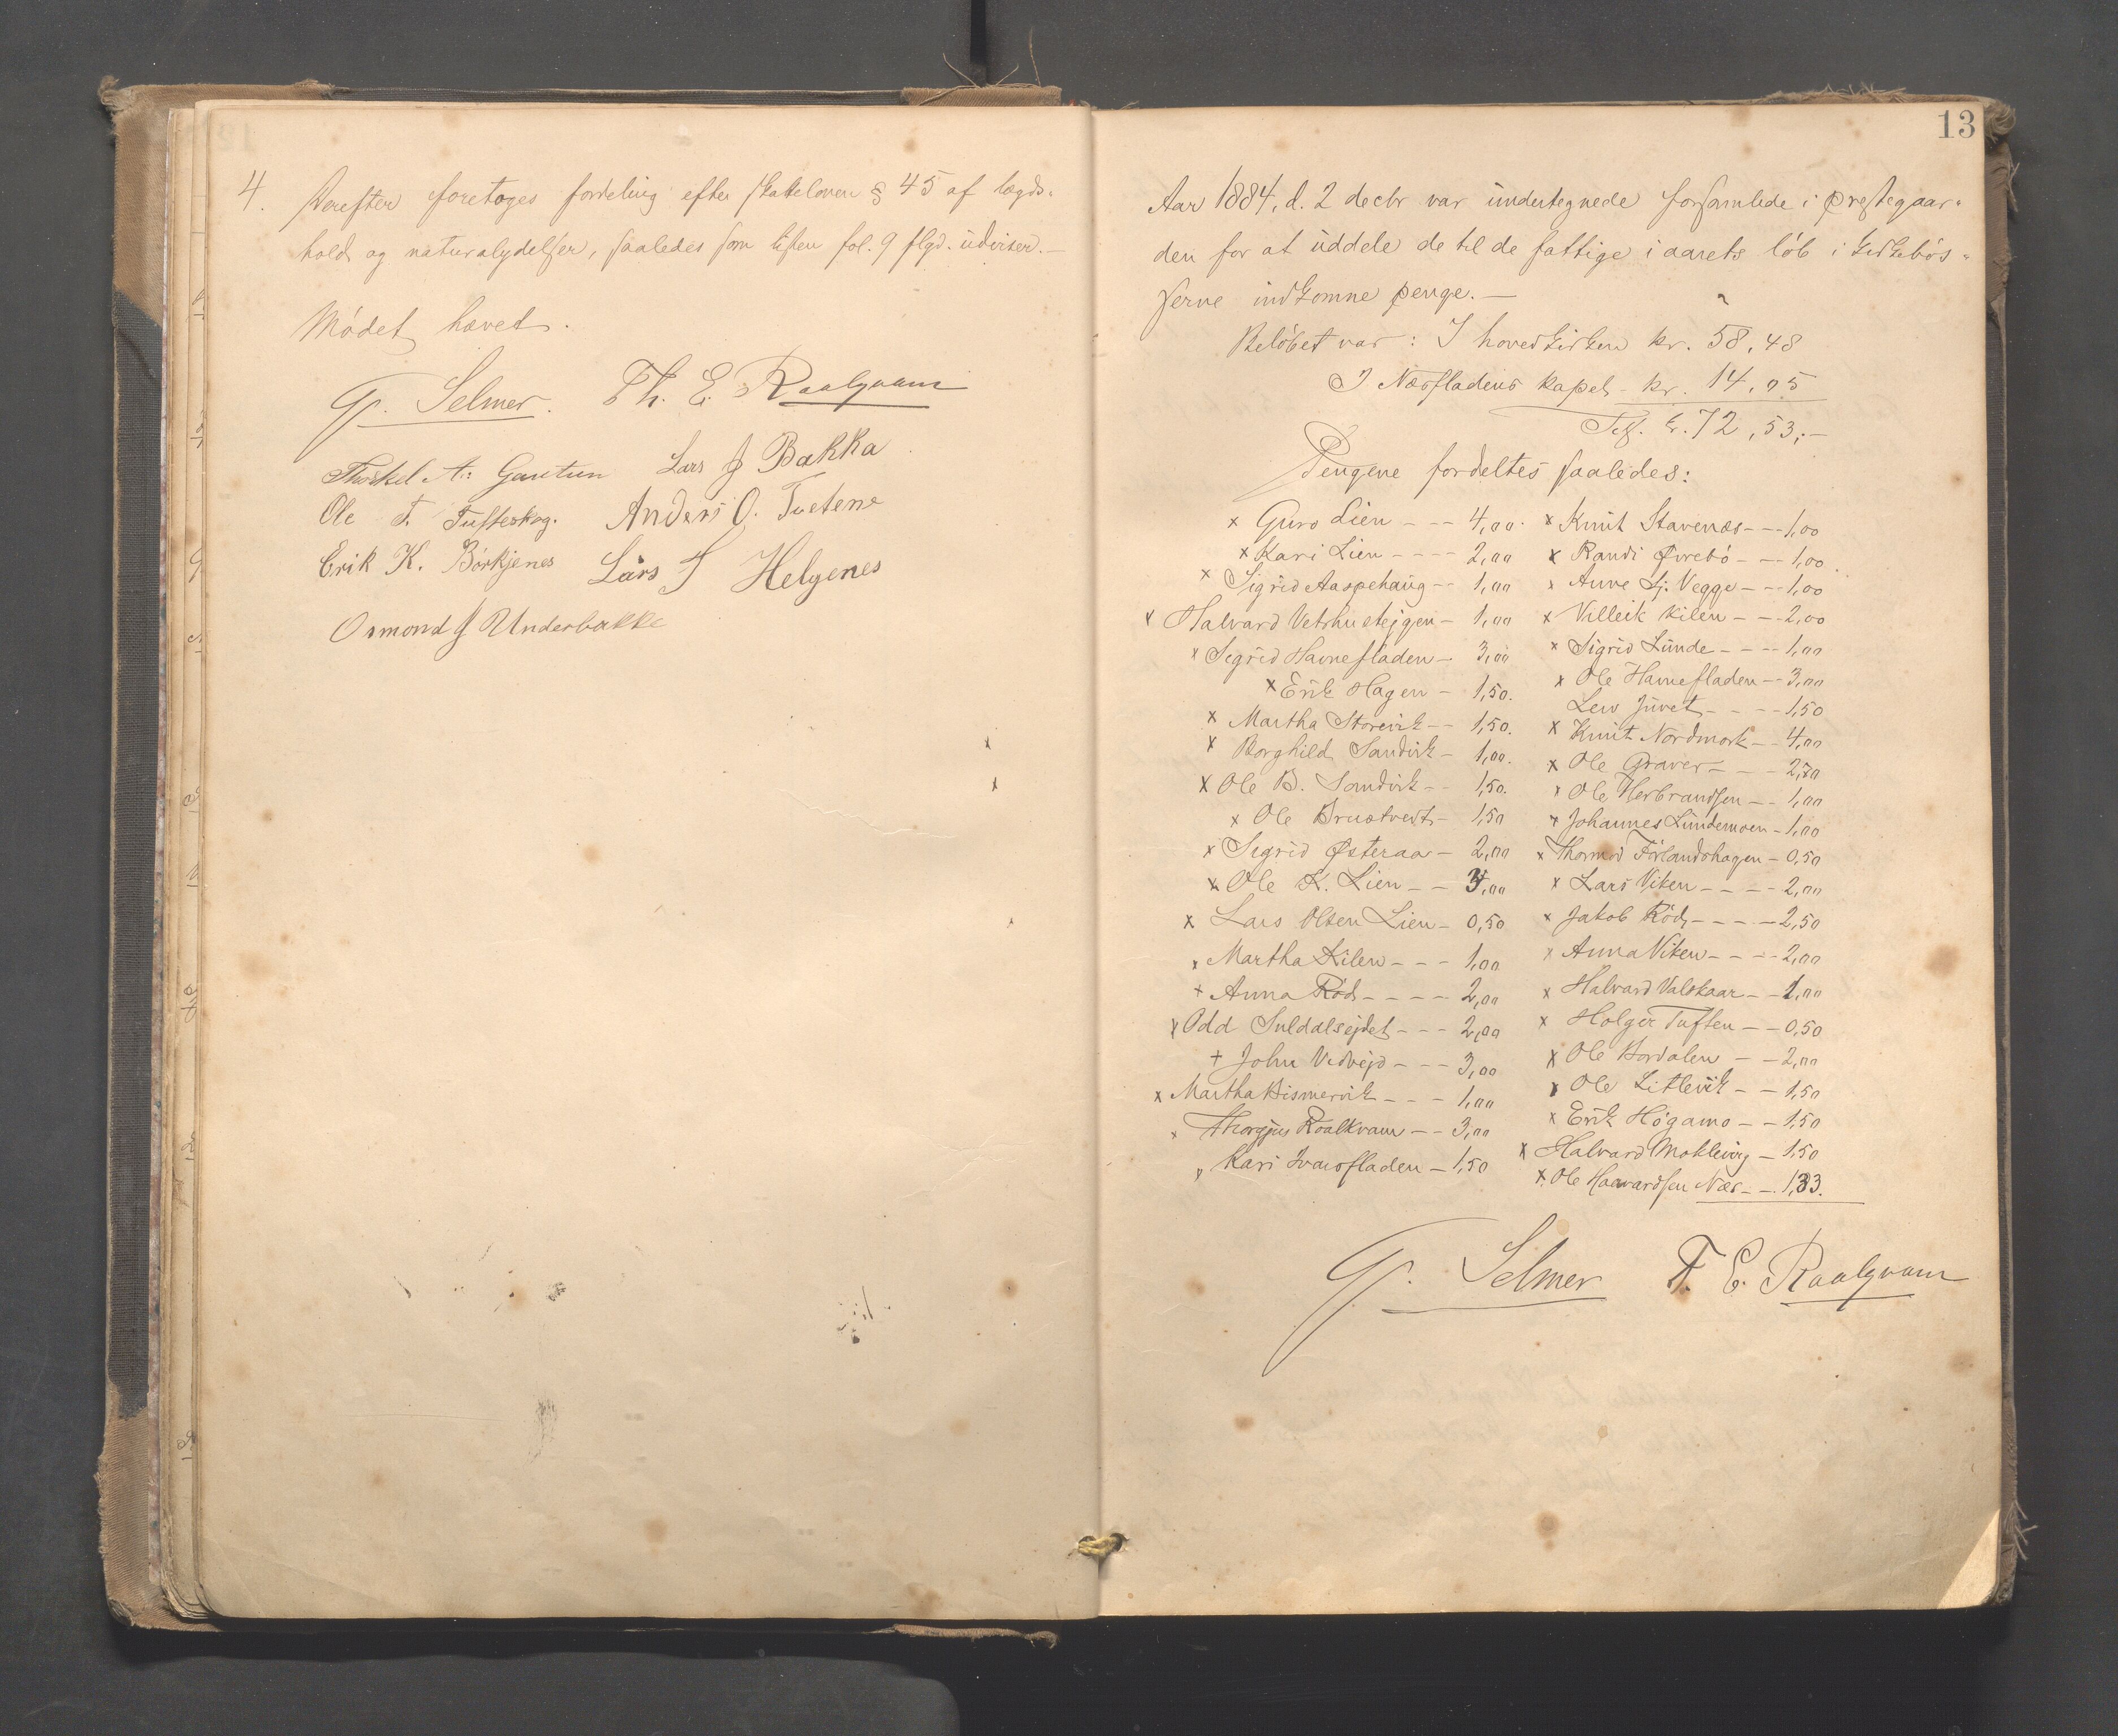 4. Derefter foretoges fordeling efter skatteloven § 45 af lægds-
hold og naturalydelser, saaledes som listen fol. 9 flgd. udviser. —
Mødet hævet.
G. Selmer. Th. E. Raalqvam
Thorkel A. Gautun Lars J Bakka
Ole T. Tufteskog. Anders O. Tvetene
Erik K. Børkjenes Lars S Helgenes
Osmond J Underbakke
13
Aar 1884, d. 2 decbr var undertegnede forsamlede i prestegaar-
den for at uddele de til de fattige i aarets løb i kirkebøs-
serne indkomne penge. —
Beløbet var: I hovedkirken kr. 58,48
I Næsfladens kapel - kr. 14,05
Tils. kr. 72,53,-
Pengene fordeltes saaledes:
x Guro Lien - - - 4,00.
x Kari Lien - - - - 2,00
x Sigrid Aaspehaug - - 1,00
x Halvard Vetrhusteigen - 1,00
x Sigrid Havnefladen - 3,00
x Erik Hagen - 1,50.
x Martha Storevik - - 1,50.
x Borghild Sandvik - 1,00.
x Ole B. Sandvik - - 1,50.
x Ole Bruatvedt - 1,50
x Sigrid Østeraa - 2,00
x Ole K. Lien - - 3,00
x Lars Olsen Lien - 0,50
x Martha Kilen - - - 1,00
x Anna Rød - - - - 2,00
x Odd Suldalsejdet - - - 2,00
+ John Vedvejd - - - 3,00
x Martha Bismervik - - - 1,00
x Thorgjus Roalkvam - - 3,00
x Kari Ivarsfladen - 1,50
x Knut Stavenæs - - - 1,00
x Randi Øvrebø - - - 1,00.
x Anne Sj. Vegge - - - 1,00
x Villeik Kilen - - - 2,00
x Sigrid Lunde - - - - 1,00
x Ole Havnefladen - - 3,00
Lew Juvet - - - - 1,50
x Knut Nordmork - - 4,00
x Ole Graver - - - 2,70
x Ole Herbrandsen - - 1,00
x Johannes Lundemoen - 1,00
x Thormod Førlandshagen - 0,50
x Lars Viken - - - - 2,00
x Jakob Rød - - - - 2,50
x Anna Viken - - - - 2,00
x Halvard Valskaar - - 1,00
x Holger Tuften - - 0,50
x Ole Hordalen - - 2,00
x Ole Litlevik - - 1,50
x Erik Høgamo - - 1,50
x Halvard Moklevig - 1,50
x Ole Haavardsen Næs - - 1,33.
G. Selmer T. E. Raalqvam